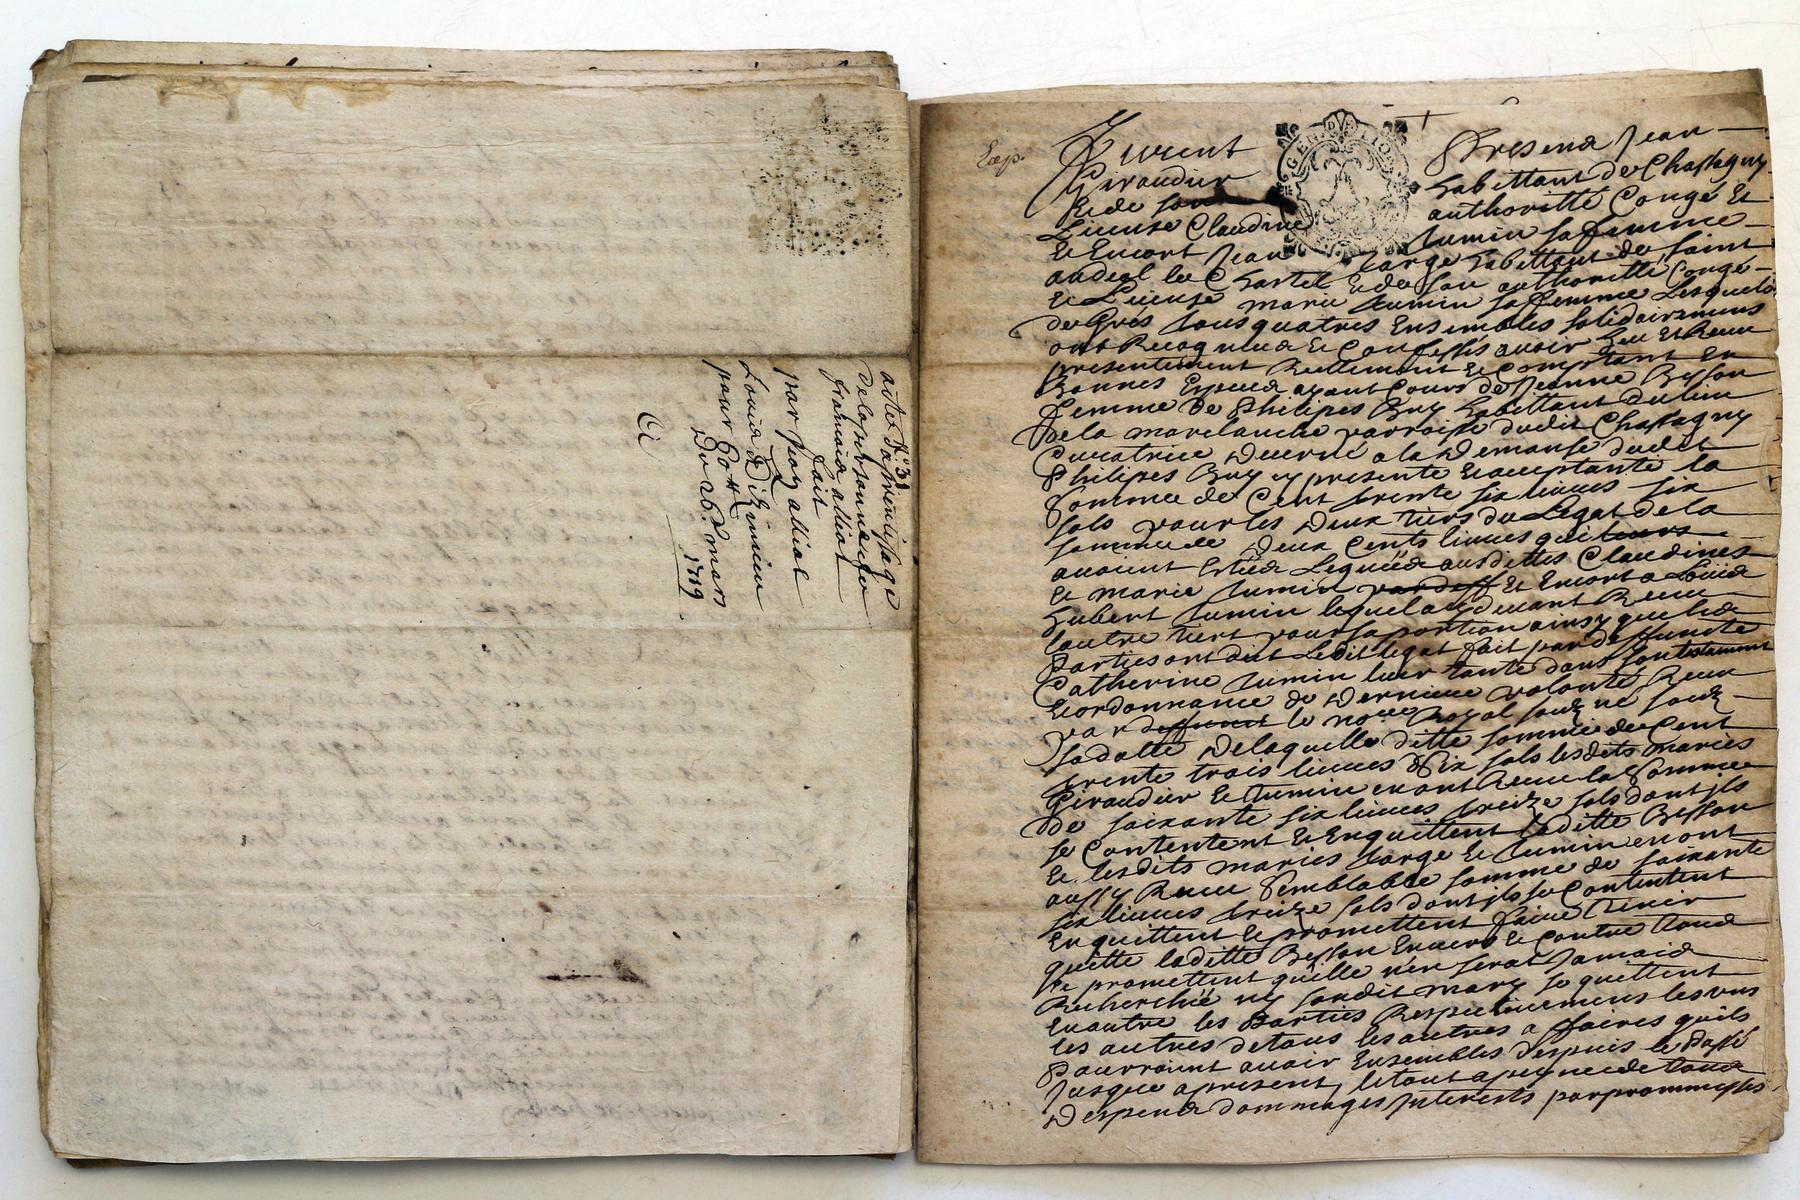 N° 31
acte d'aprentissage
de la personne de
francois alliot
fait
par jean alliot
a Louis
pour 60 tt
Du 26e mars
1719
Exp.
GEN D LION
Furent Presens Jean
Giraudier habittant de Chassagny
et de son authoritté Congé et
License Claudine Jumin sa femme
et Encort Jean Large habittant de saint
andeol le Chastel et de son authoritté Congé
et License marie Jumin sa femme Lesquels
de Gres tous quatres Ensembles solidairemens
ont Recognus et Confessés avoir heu et Receu
presentement Reellement et Comptant En
Bonnes Especes ayant Cours de Jeanne Besson
femme de Philipes Buy habittant du lieu
de la marclauche parroisse dudit Chassagny
Curatrice decerné a la demanse dudit
Philipes Buy cy presente et acceptante la
somme de Cent trente six livres six
sols pour les deux tiers du Legat de la
somme de deux Cents livres qui leurs
avoient Estés Legués ausdittes Claudines
et marie Jumin par deff et Encort a
hubert Jumin lequel a cy devant Receu
lautre tiert pour sa portion ainsy que lesd
Parties ont dit Ledit legat fait par deffuncte
Catherine Jumin luer tante dans son testament
et ordonnance de derniere volonté Receu
par deffunct le noere Royal soubz né soubz
sa datte de laquelle ditte somme de Cent
trente trois livres six sols lesdits mariés
Giraudier et Jumin en ont Receu la somme
de soixante six livres treize sols dont jls
se Contentent et Enquittent laditte Besson
et lesdits mariés Large et Jumin en ont
aussy Receu semblable somme de soixante
six livres treize sols dont jls se Contentent
Enquittent et promettent faire tenir
quitte laditte Besson Envers et Contre tous
et promettent quelle n'en serat Jamais
Recherchée ny son dit mary se quittent
En outre les Parties Respectivemens les uns
les autres de tous les autres affaires quils
Pourroint avoir Ensembles despuis le Passé
Jusque a present, le tout a peyne de tous
despens dommages Interests par prommesses